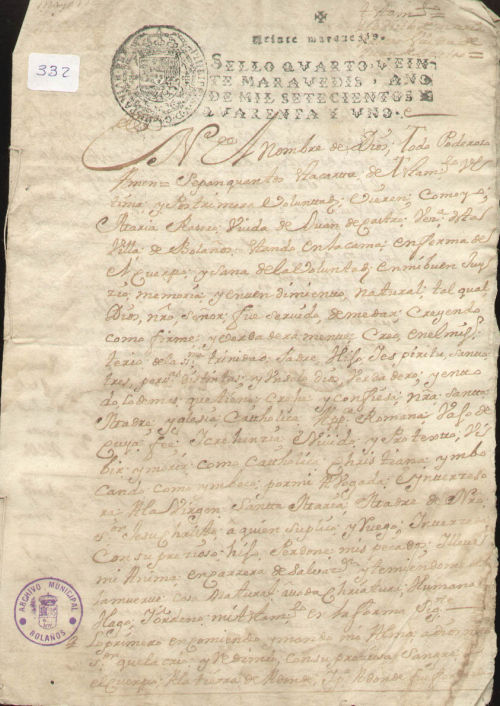 332
Veinte maravedis.
SELLO QVARTO, VEIN-
TE MARAVEDIS, AÑO
DE MIL SETECIENTOS Y
QVARENTA Y VNO.
Nombre de Dios, Todo Poderoso
Amen = Sepan quantos
tima y Postrimera Voluntad, Vieren, Como yo
Maria Viuda de Juan de Castro, Vez.ª
Villa de Bolaños, estando en la cama, enferma de
Cuerpo y Sana de la Voluntad, en mi buen Juy
zio, memoria, y entendimiento, natural, tal qual
Dios, nro Señor, fue servido, de me dar; Creyendo
como firme y berdaderamente Creo, en el mis
terio de la ss.ma trinidad, Padre, Hijo, Espiritu, Santto
tres, pers.s distintas, y Un Solo dios, Verdadero, y en to
do lo demas, que tiene, Crehe y Confiesa, nra Santta
Madre, yglesia, Catholica App.ca Romana, Vajo de
Cuya fee, Y Crehenzia, e Vivido, y Protesto, Vi
bir y morir como Catholica Christiana; y ymbo
cando como ymboco, por mi Abogada, e Ynterzeso
ra, A la Virgen, Santta Maria, Madre de Nro
S.or Jesu Christto a quien Suplico, y Ruego, Ynterze
Con su prezioso hijo, Perdone, mis pecados, y lleve
mi Anima, en carrera de Salvaz.on y temiendome de
la muerte, Cosa Natural a toda Chriatura, Humana
Hago, y ordeno, mi en la forma Sig.te
Lo primero encomiendo, y mando mi Alma, a dios nro
S.r que la crio, y Redimio, con su preciosa Sangre, y
el cuerpo, A la tierra de Adonde,
ARCHIVO MUNICIPAL
BOLAÑOS